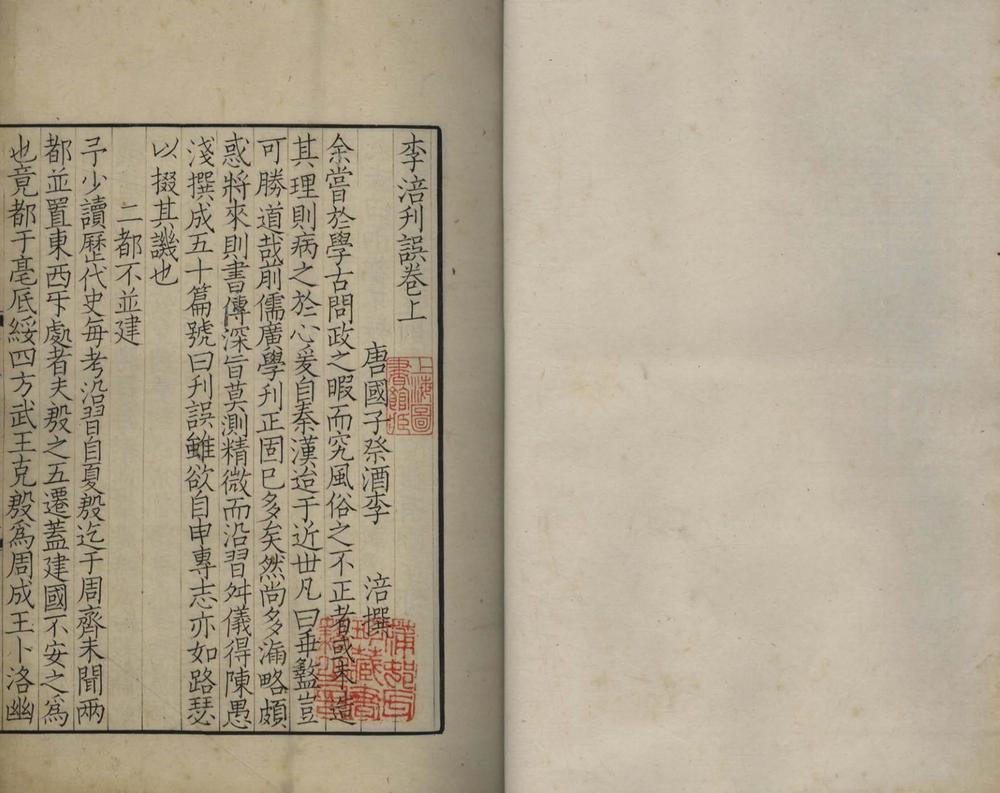 李涪刋誤卷上
唐國子祭酒李　涪撰
余嘗於學古問政之暇而究風俗之不正者或未造
其理則病之於心爰自秦漢迨于近世凡曰乖盭豈
可勝道㢤前儒廣學刋正固已多矣然尚多漏略頗
惑將來則書傳深旨莫測精微而沿習舛儀得陳愚
淺撰成五十篇號曰刋誤雖欲自申專志亦如路瑟
以掇其譏也
二都不並建
予少讀歷代史每考沿習自夏殷迄于周齊未聞兩
都並置東西㸦處者夫殷之五遷蓋建國不安之爲
也竟都于亳厎綏四方武王克殷爲周成王卜洛幽
上海圖
書館藏